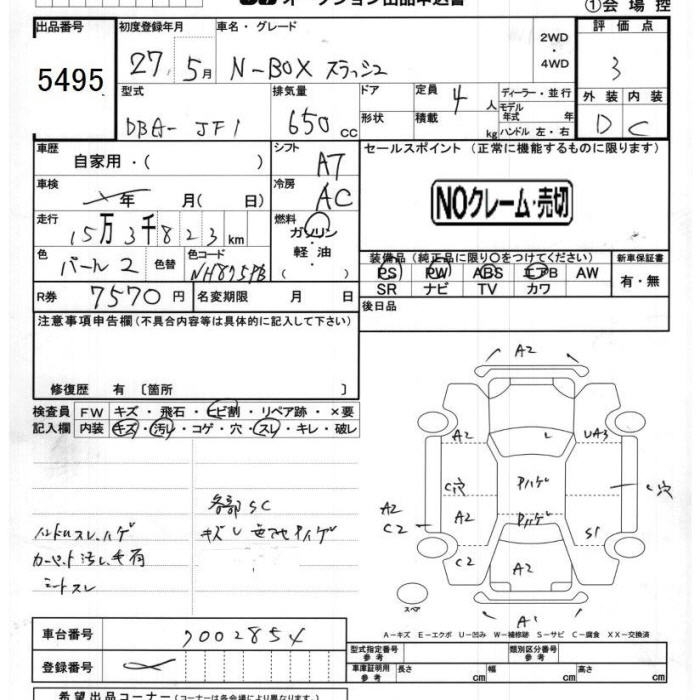 オークション出品申込書
①会場控
出品番号 初度登録年月 車名・グレード 評価点
5495 27年5月 N-BOX スラッシュ 2WD・4WD 3
型式 排気量 ドア 定員 4人 ディーラー・並行 外装 内装
DBA- JF1 650cc 形状 積載 kg モデル年式 年 D C
ハンドル 左・右
車歴 シフト セールスポイント (正常に機能するものに限ります)
自家用・( ) AT
車検 年 月( 日) 冷房 AC NOクレーム・売切
走行 15万3千823km 燃料
ガソリン
軽油
( )
色 パール2 色替 色コード NH875PB
装備品 (純正品に限り〇をつけてください) 新車保証書
PS PW ABS エアB AW 有・無
SR ナビ TV カワ
R券 7570円 名変期限 月 日
後日品
注意事項申告欄 (不具合内容等は具体的に記入して下さい)
修復歴 有 〔箇所 〕
検査員 FW キズ・飛石・ヒビ割・リペア跡・×要
記入欄 内装 キズ・汚レ・コゲ・穴・スレ・キレ・破レ
A2
A2 U A3
C穴 Pハゲ C穴
A2
C2 A2 Pハゲ S1
C2 A2
スペア
各部SC
ハンドルスレ、ハゲ
カーペット汚レ
シートスレ
A-キズ E-エクボ U-凹み W-補修跡 S-サビ C-腐食 XX-交換済
車台番号 7002854
登録番号
型式指定番号 参考 類別区分番号 参考
車庫証明用 参考 長さ cm 幅 cm 高さ cm
希望出品コーナー (コーナーは各会場により異なります)